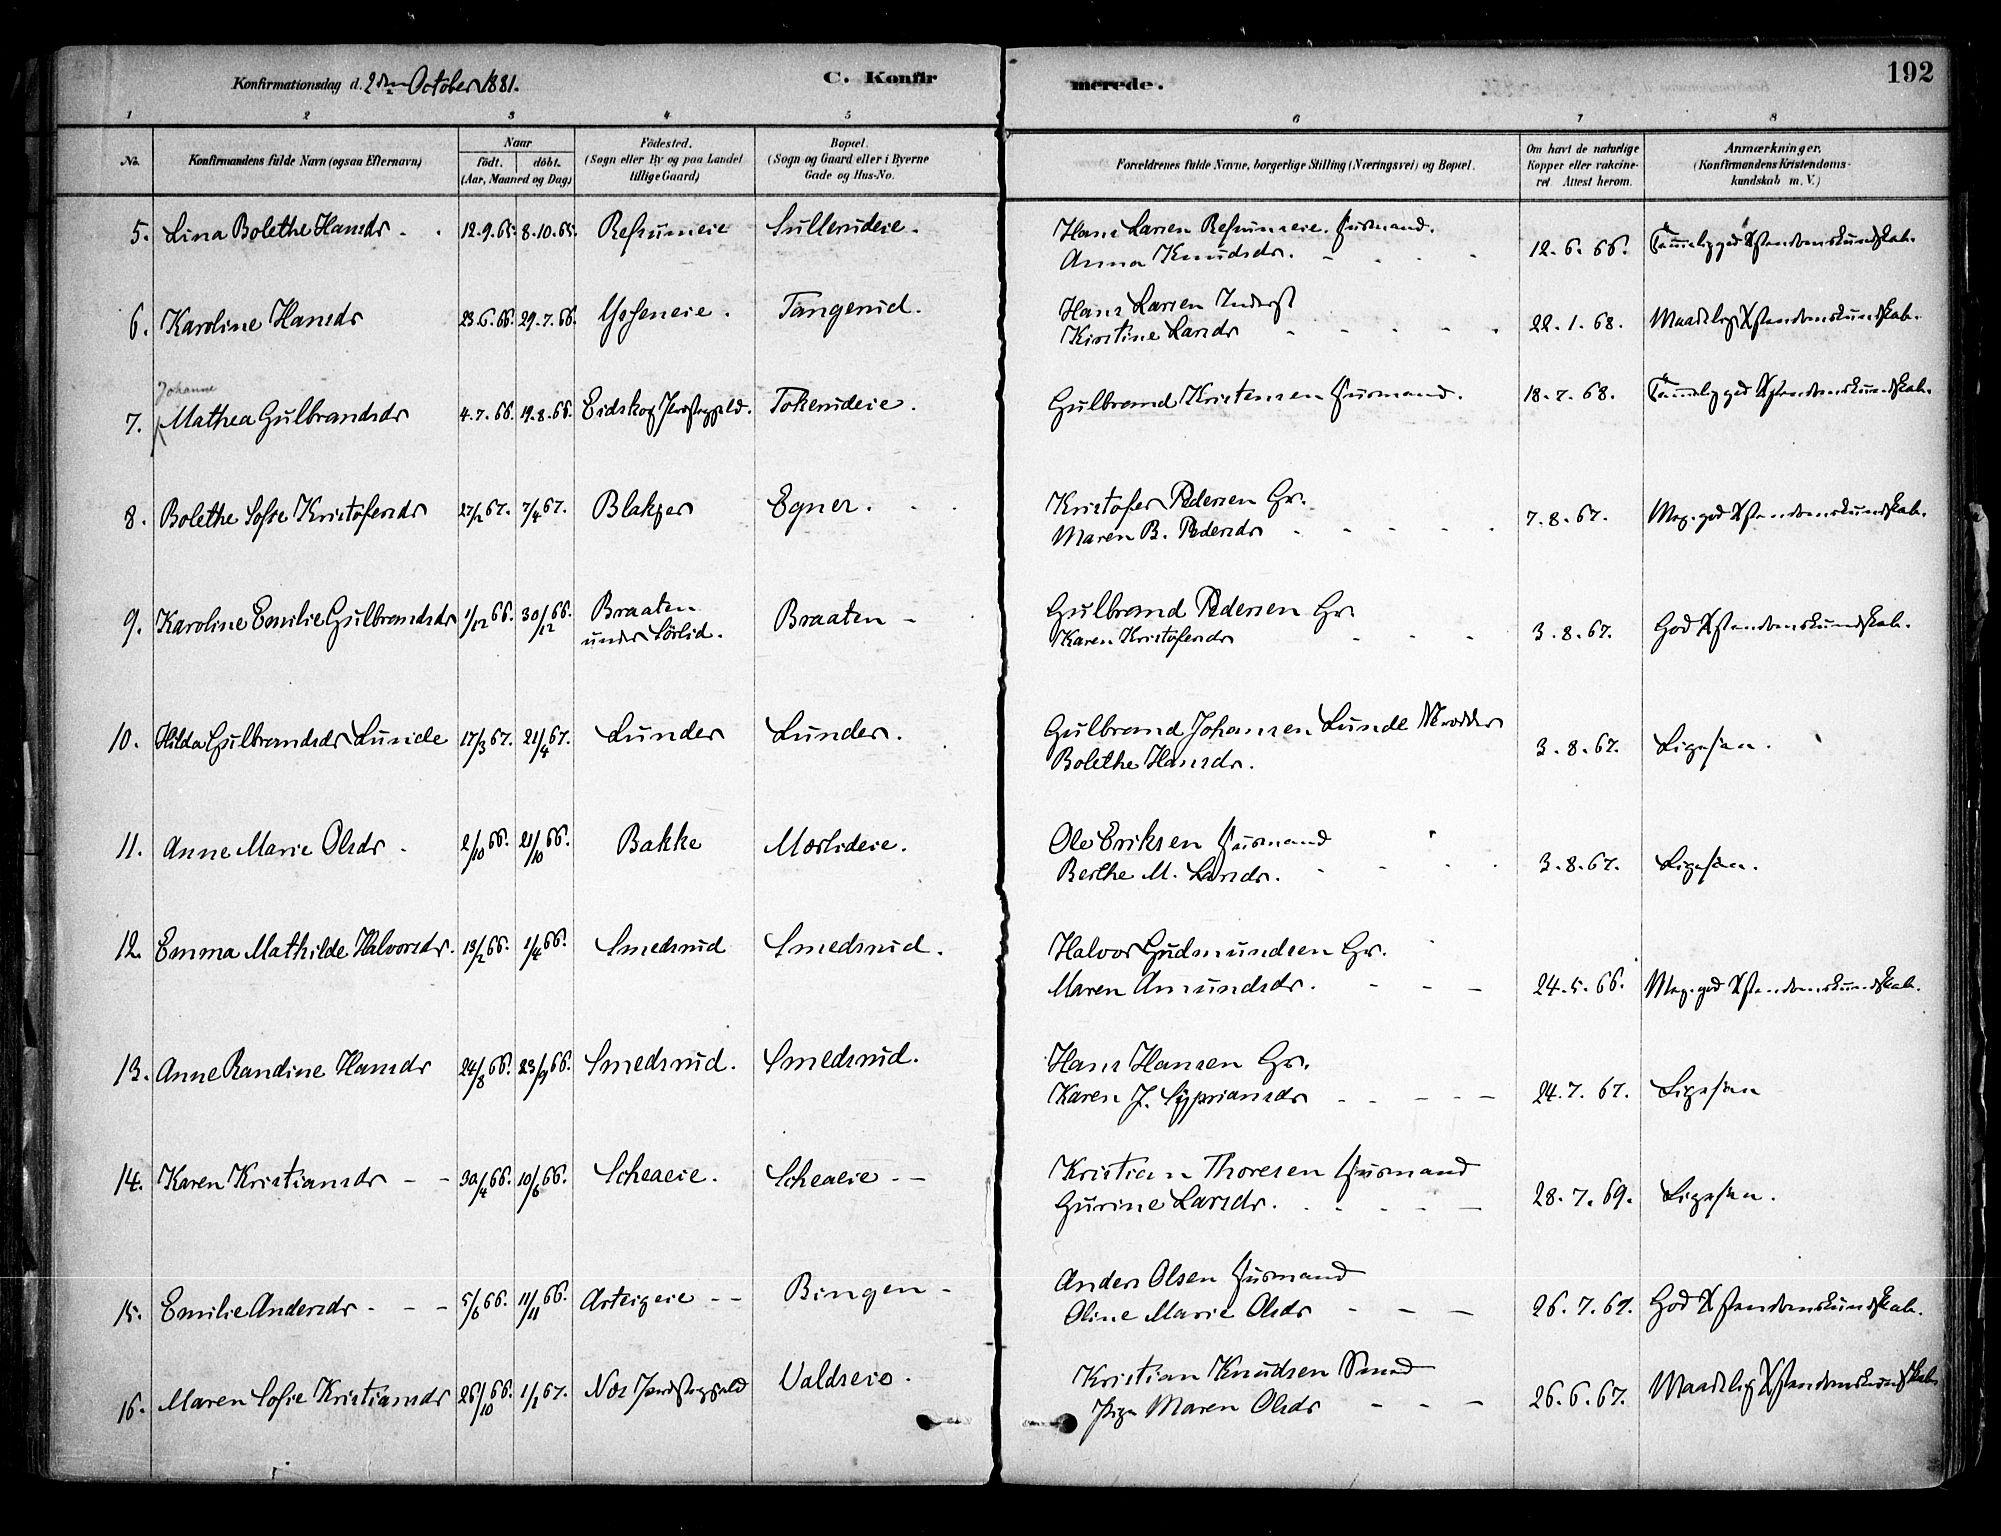 192
Konfirmationsdag d. 2den October 1881.
C. Konfirmerede.
1 2 3 4 5 6 7 8
No. Konfirmandens fulde Navn (ogsaa Efternavn) Naar født. døbt. (Aar, Maaned og Dag) Fødested. (Sogn eller By og paa Landet tillige Gaard) Bopæl. (Sogn og Gaard eller i Byerne Gade og Hus-No. Forældrenes fulde Navne, borgerlige Stilling (Næringsvei) og Bopæl. Om havt de naturlige Kopper eller vakcineret. Attest herom. Anmærkninger. (Konfirmandens Kristendomskundskab m. V.)
5. Lina Bolethe Hansdr. 12.9.65. 8.10.65. Sullerudeie. Hans Larsen Husmand. 12.6.66. Temmelig god Xstendomskundskab.
Anna Knudsdr.
6. Karoline Hansdr 23.6.66. 29.7.66. Tangerud. Hans Larsen Inderst 22.1.68. Maadelig Xstendomskundskab.
Kirstine Larsdr
Johanne
7. Mathea Gulbrandsdr 4.7.66. 19.8.66. Eidskog Præstegjeld. Tokerudeie. Gulbrand Kristensen Husmand. 18.7.68. Temmelig god Xstendomskundskab.
8. Bolethe Sofie Kristofersdr 27/2 67. 7/4 67. Blakjer Egner. Kristofer Pedersen Gr. 7.8.67. Meg. god Xstendomskundskab.
Maren B. Pedersdr
9. Karoline Emilie Gulbrandsdr 1/12 66. 30/12 66. Braaten under Sørlid. Braaten - Gulbrand Pedersen Gr. 3.8.67. God Xstendomskundskab.
Karen Kristofersdr
10. Hilda Gulbrandsdr Lunde 17/3 67. 21/4 67. Lunder Lunder. Gulbrand Johansen Lunde 3.8.67. Ligesaa.
Bolethe Hansdr.
11. Anne Marie Olsdr. 2/10 66. 21/10 66. Bakke Mørlideie. Ole Eriksen Husmand 3.8.67. Ligesaa.
Berthe M. Larsdr.
12. Emma Mathilde Halvorsdr. 13/2 66. 1/4 66. Smedsrud Smedsrud. Halvor Gudmundsen Gr.
Maren Amundsdr. 24.5.66. Meg. god Xstendomskundskab.
13. Anne Randine Hansdr 24/8 66. 23/9 66. Smedsrud. Smedsrud. Hans Hansen Gr.
Karen J. Sypriansdr 24.7.67. Ligesaa
14. Karen Kristiansdr 30/4 66. 10/6 66. Scheaeie. Scheaeie Kristian Thoresen Husmand
Gurine Larsdr. 28.7.69. Ligesaa.
15. Emilie Andersdr. 5/6 66. 11/11 66. Arteigeie Bingen Anders Olsen Husmand
Oline Marie Olsdr 26.7.67. God Xstendomskundskab.
16. Maren Sofie Kristiansdr 26/10 66. 1/1 67. Nes Præstegjeld Valdseie. Kristian Knudsen Smed
Pige Maren Olsdr 26.6.67. Maadelig Xstendomskundskab